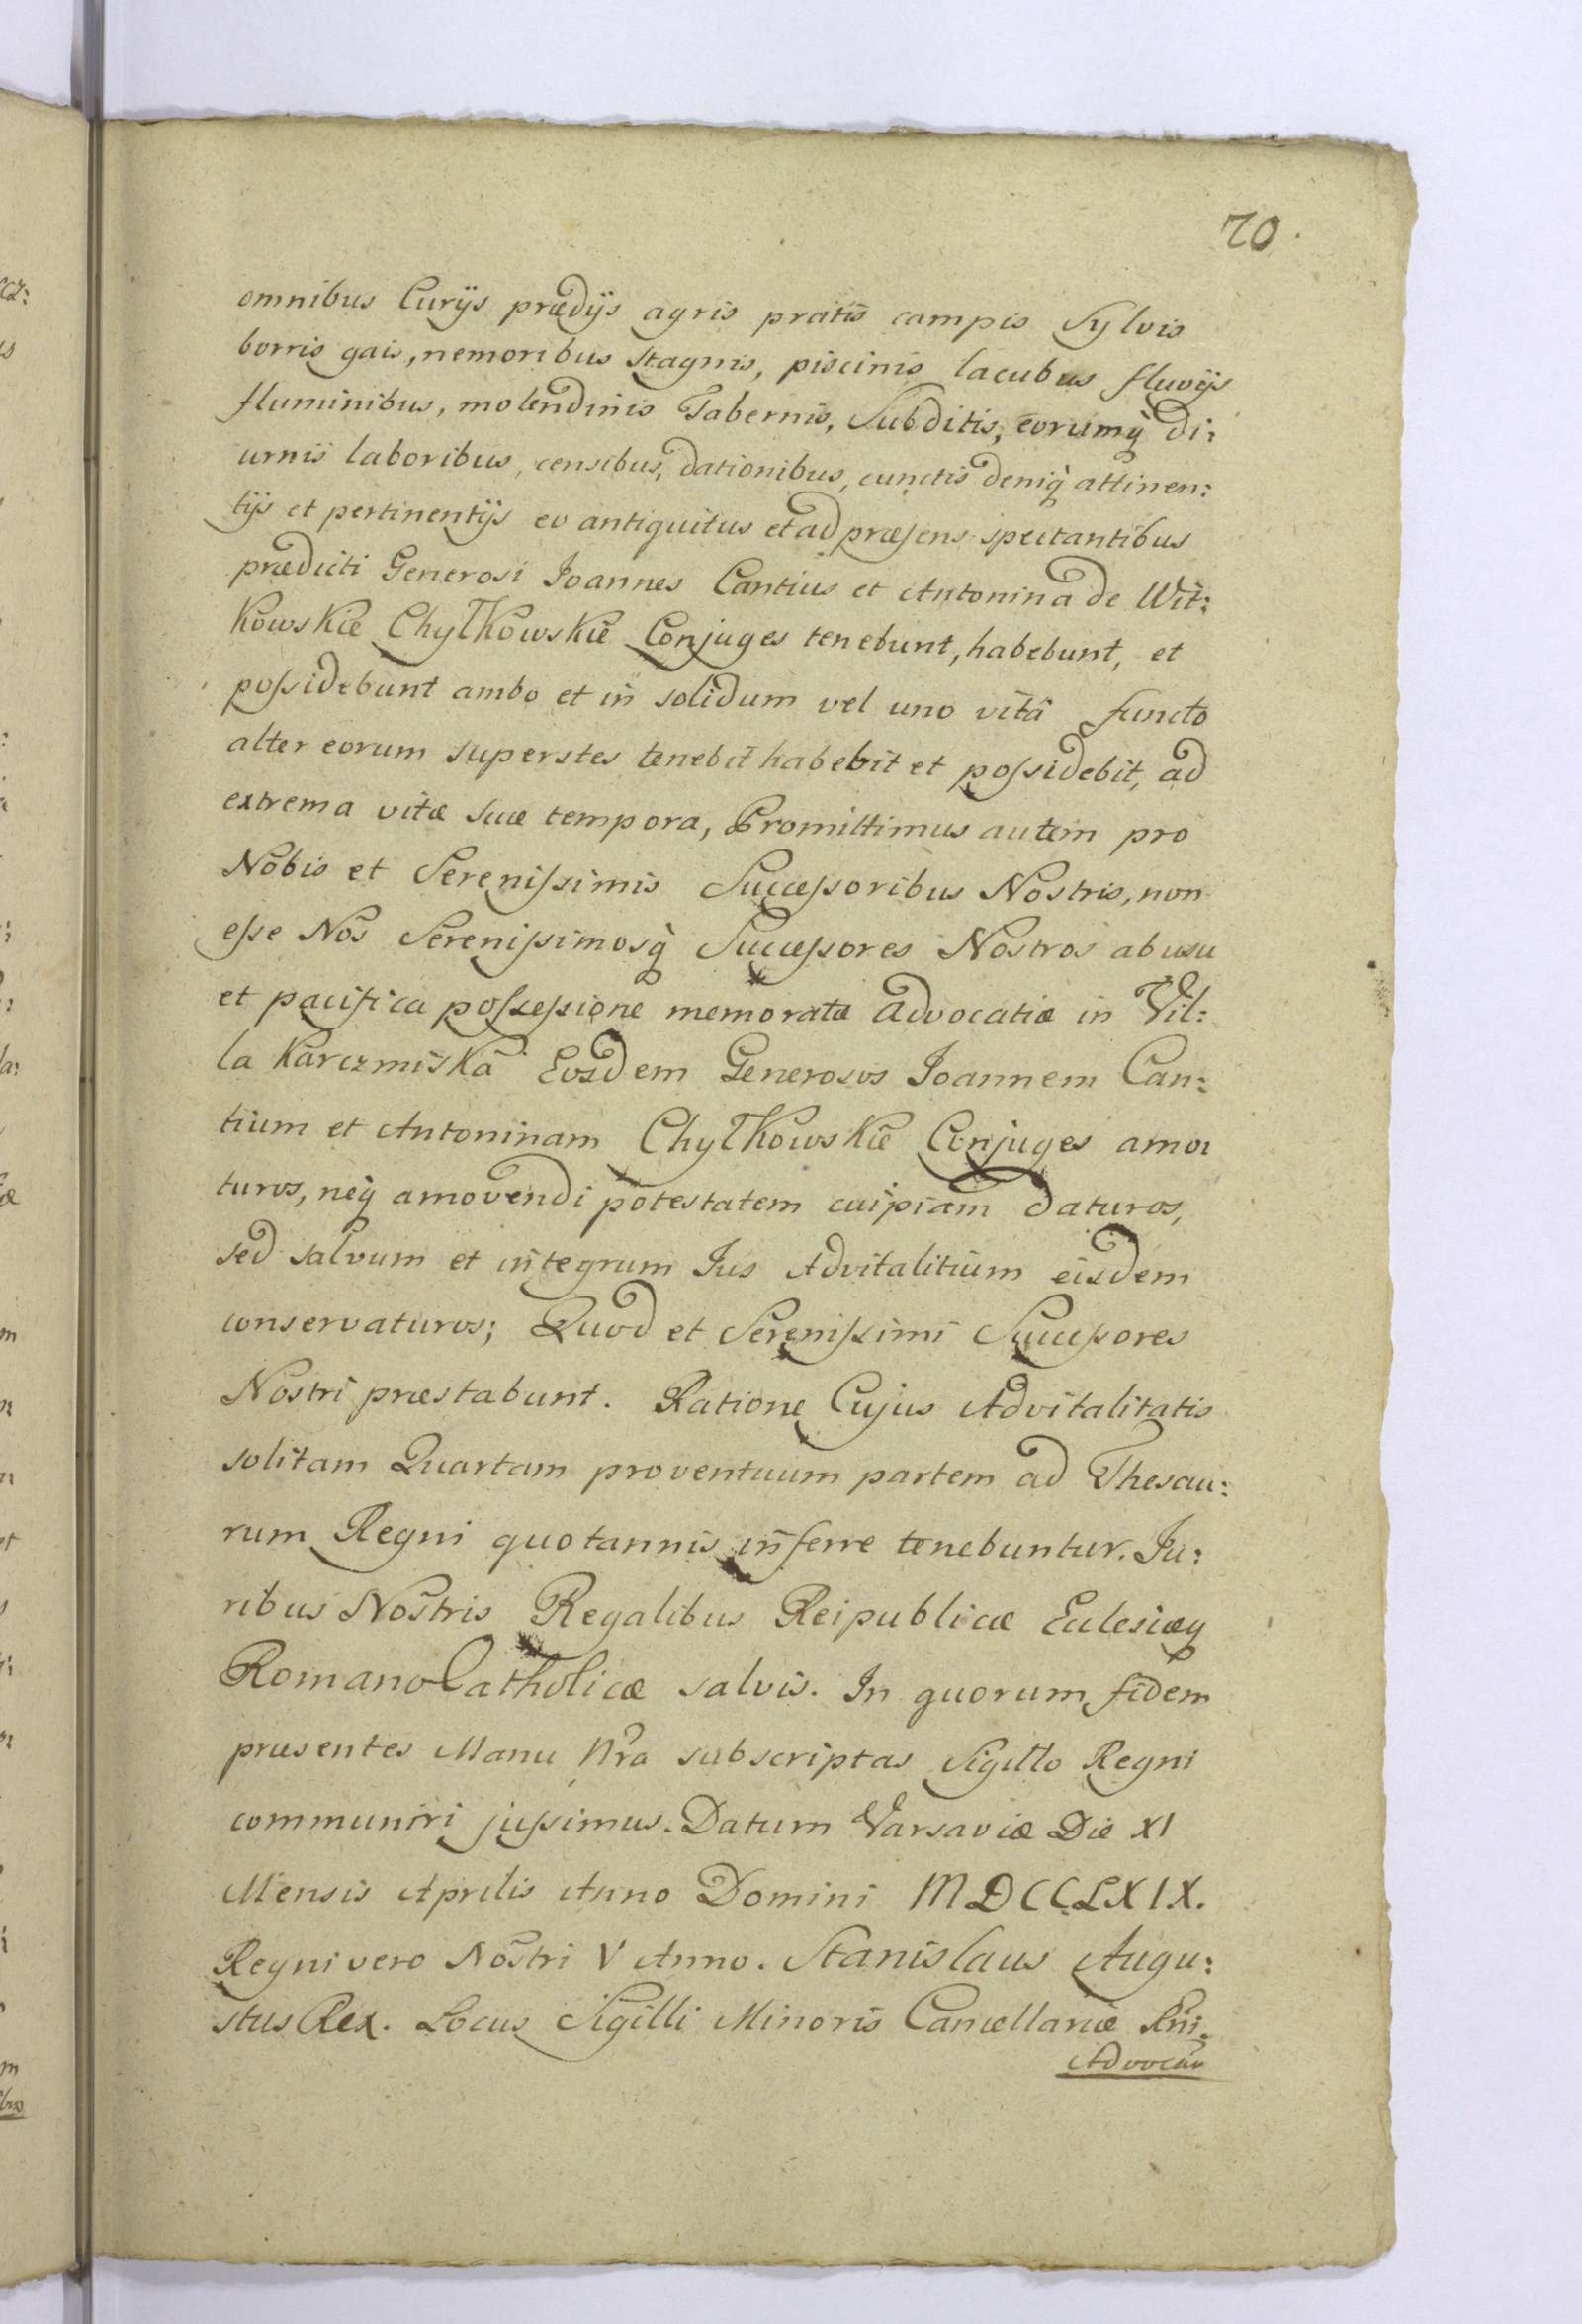 70.
omnibus Curÿs prædÿs agris pratis campis Sylvis
borris gais, nemoribus stagnis, piscinis lacubus fluvÿs
fluminibus, molendinis Tabernis, Subditis, eorumq́ di:
urnis laboribus, censibus, dationibus, cunctis deniq́ attinen:
tÿs et pertinentÿs eo antiquitus et ad præsens spectantibus
prædicti Generosi Joannes Cantius et Antonina de Wit:
kowskie Chylkowskie Conjuges tenebunt, habebunt, et
possidebunt ambo et in solidum vel uno vitâ functo
alter eorum superstes tenebit habebit et possidebit, ad
extrema vitæ suæ tempora, Promittimus autem pro
Nobis et Serenissimis Successoribus Nostris, non
esse Nos Serenissimosq́ Successores Nostros ab usu
et pacifica possessione memoratæ Advocatiæ in Vil:
la Karczmiska Eosdem Generosos Joannem Can:
tium et Antoninam Chylkowskie Conjuges amo:
turos, neq́ amovendi potestatem cuipiam daturos,
sed salvum et integrum Jus Advitalitium eisdem
conservaturos; Quod et Serenissimi Successores
Nostri præstabunt. Ratione Cujus Advitalitatis
solitam Quartam proventuum partem ad Thesau:
rum Regni quotannis inferre tenebuntur. Ju:
ribus Nostris Regalibus Reipublicæ Eclesiæq
Romano Catholicæ salvis. In quorum fidem
præsentes Manu Nra subscriptas Sigillo Regni
communiri jussimus. Datum Varsaviæ Die XI
Mensis Aprilis Anno Domini MDCCLXIX.
Regni vero Nostri V Anno. Stanislaus Augu:
stus Rex. Locus Sigilli Minoris Cancellariæ Rni.